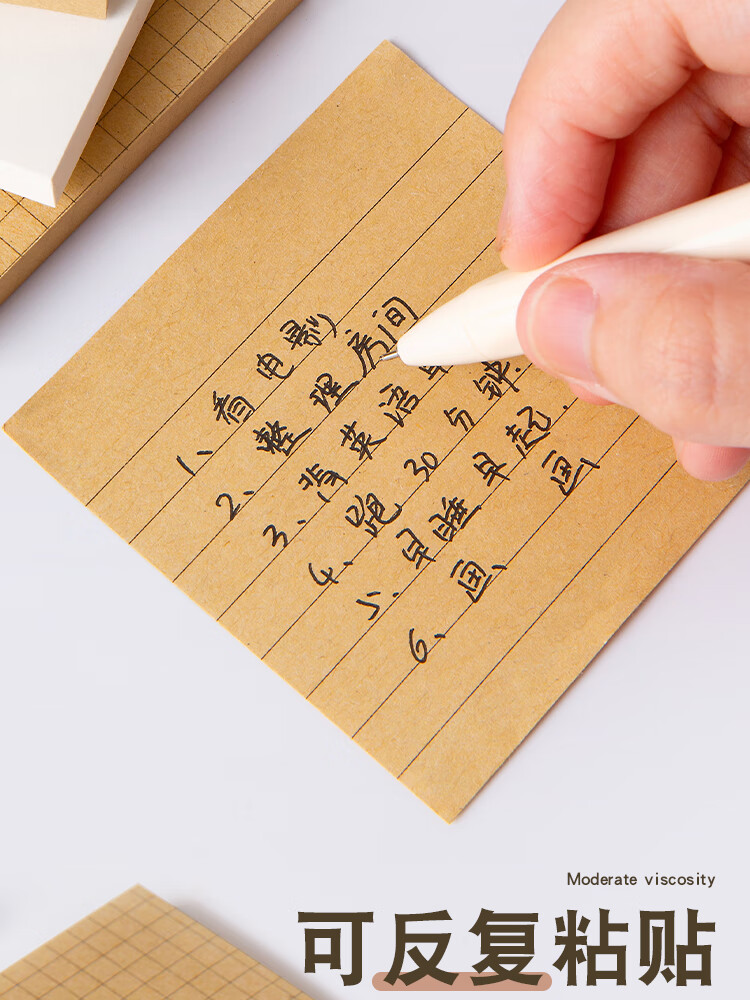 1、看电影
2、整理房间
3、背英语单
4、跑30分钟.
5.早睡早起.
6、画、画
Moderate viscosity
可反复粘贴